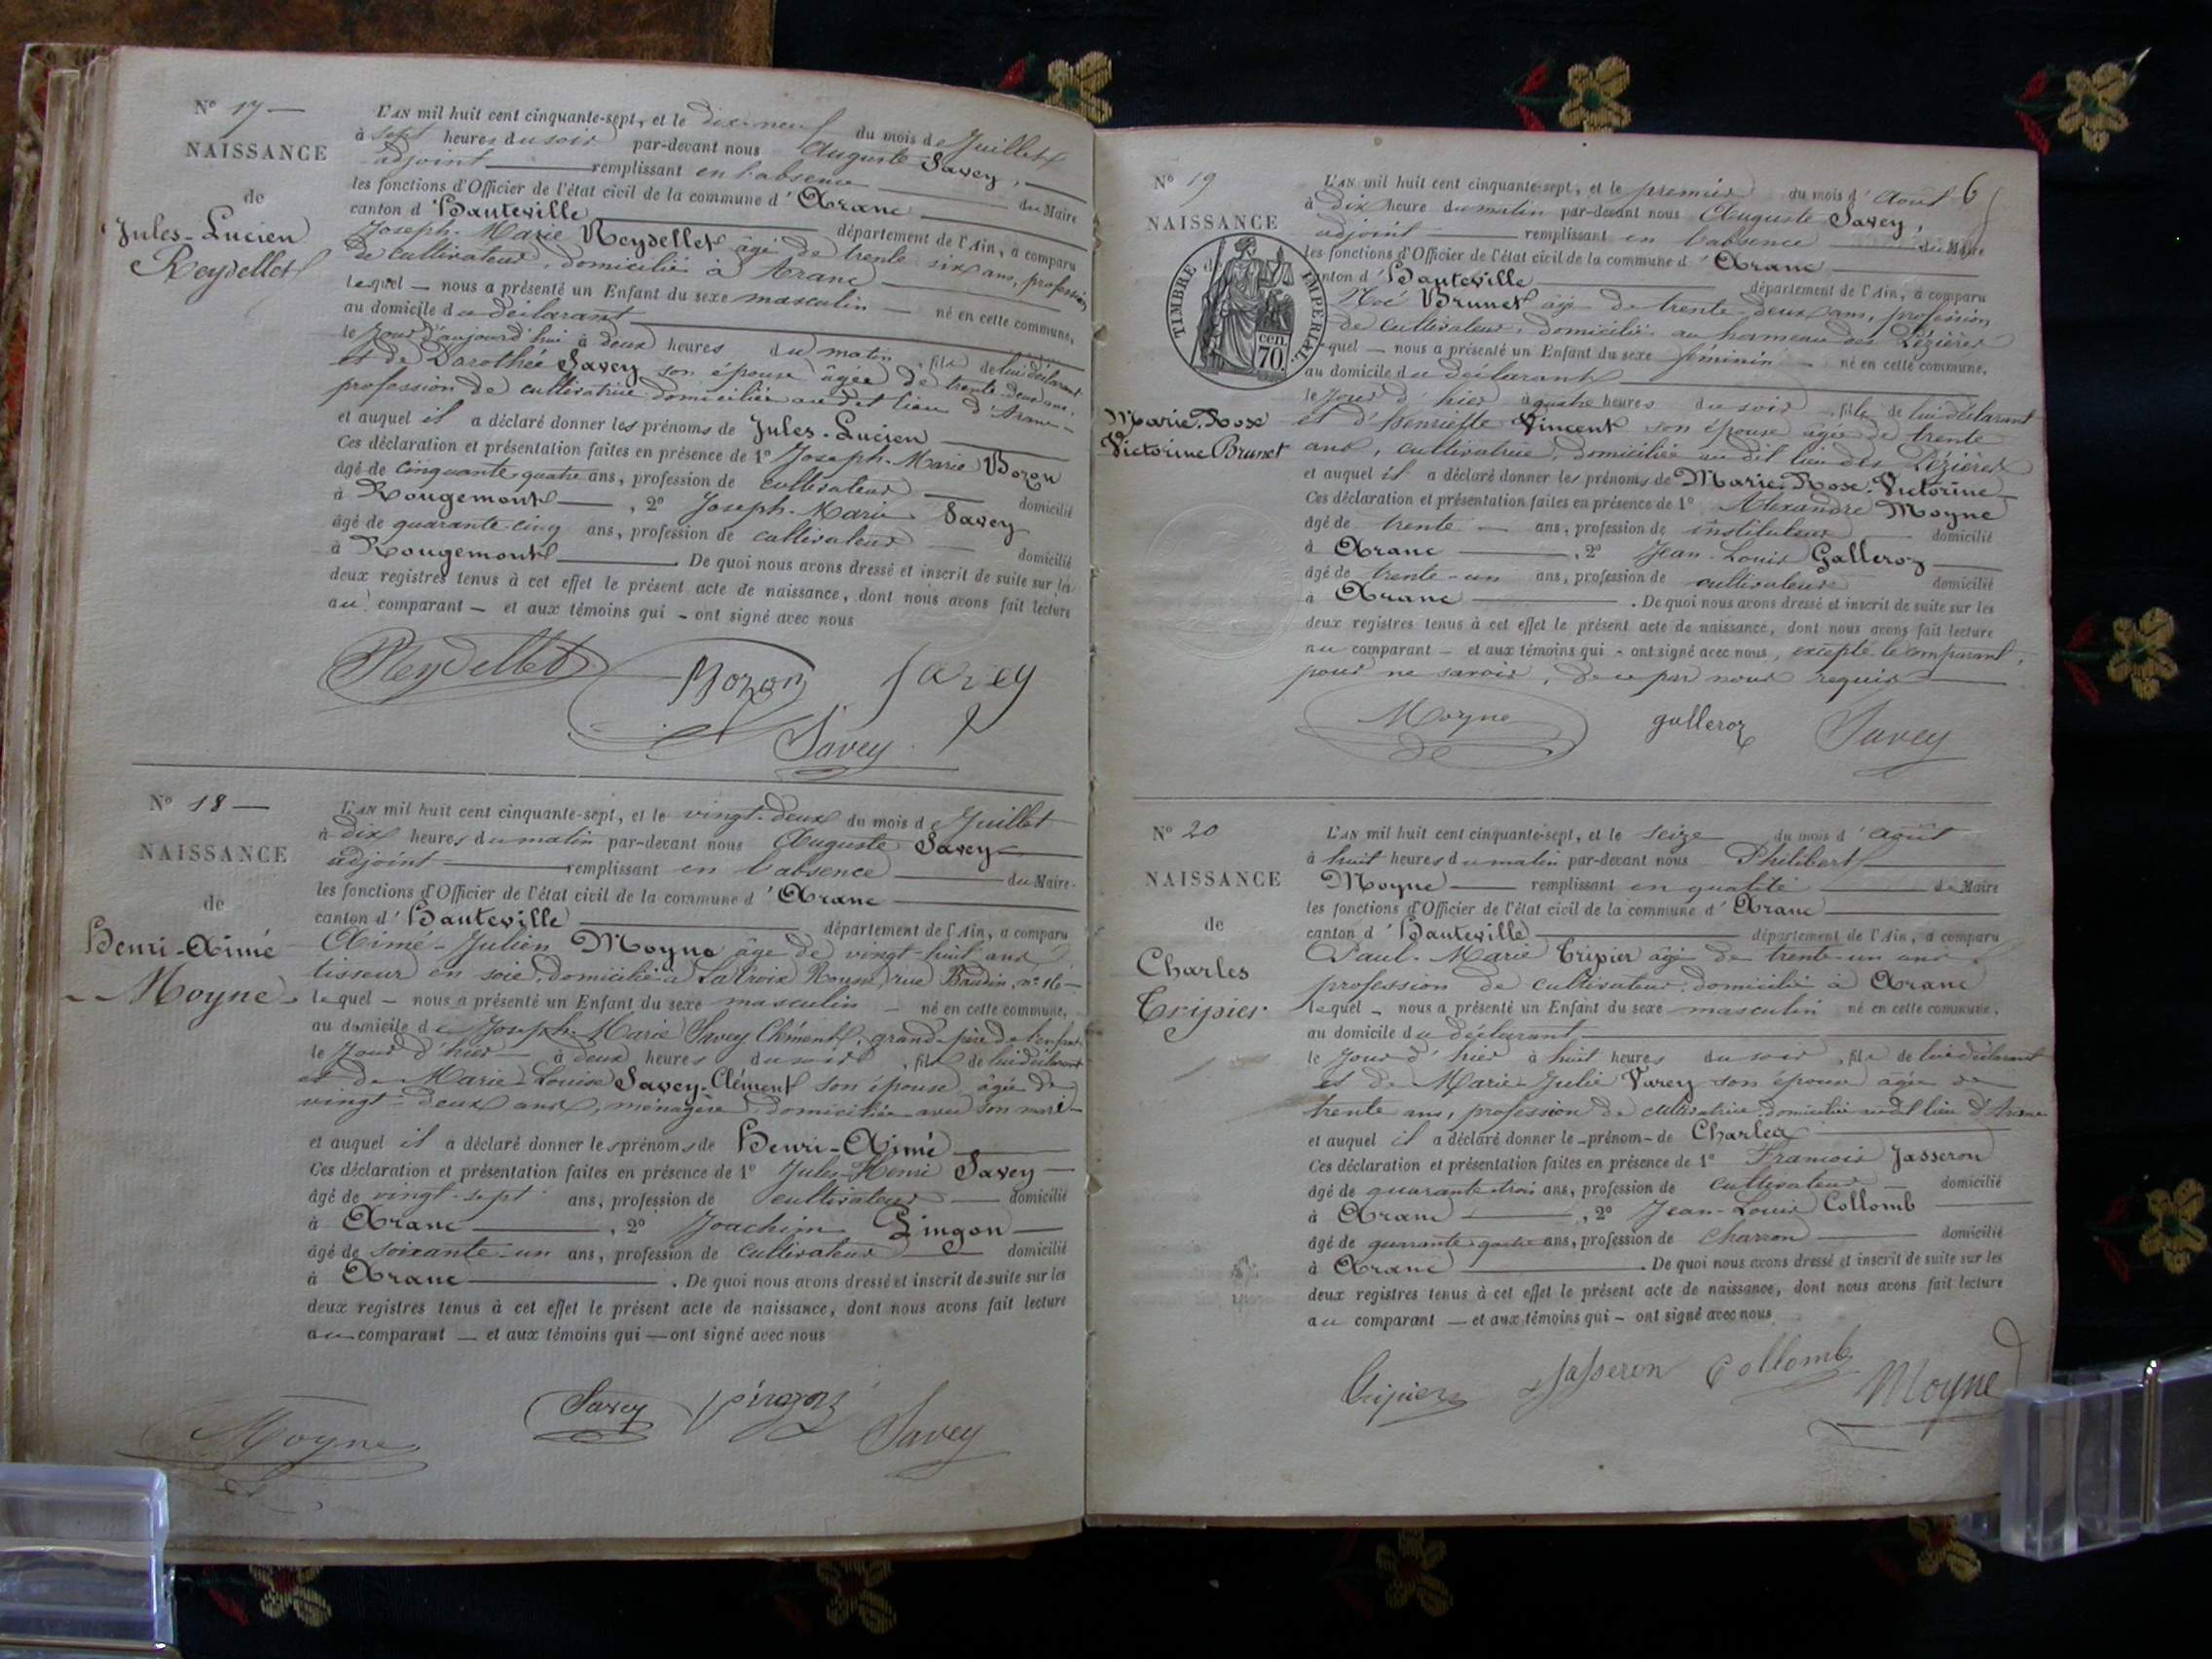 N° 17 —
NAISSANCE
de
Jules-Lucien
Reydellet
L'AN mil huit cent cinquante-sept, et le dix-neuf du mois de Juillet
à sept heures du soir par-devant nous Auguste Savey,
adjoint remplissant en l'absence du Maire
les fonctions d'Officier de l'état civil de la commune d'Aranc
canton d'Hauteville département de l'Ain, a comparu
Joseph-Marie Reydellet âgé de trente-six ans, profession
de cultivateur, domicilié à Aranc
lequel — nous a présenté un Enfant du sexe masculin — né en cette commune,
au domicile du déclarant
le jour d'aujourd'hui à deux heures du matin, fils de lui déclarant
et de Dorothée Savey son épouse âgée de trente-deux ans,
profession de cultivatrice domiciliée audit lieu d'Aranc —
et auquel il a déclaré donner les prénoms de Jules-Lucien
Ces déclaration et présentation faites en présence de 1° Joseph-Marie Bozon
âgé de cinquante-quatre ans, profession de cultivateur domicilié
à Rougemont —, 2° Joseph-Marie Savey
âgé de quarante-cinq ans, profession de cultivateur domicilié
à Rougemont . De quoi nous avons dressé et inscrit de suite sur les
deux registres tenus à cet effet le présent acte de naissance, dont nous avons fait lecture
au comparant — et aux témoins qui - ont signé avec nous
Reydellet Bozon Savey
Savey
N° 18 —
NAISSANCE
de
Henri-Aimé
- Moyne -
L'AN mil huit cent cinquante-sept, et le vingt-deux du mois de Juillet
à dix heures du matin par-devant nous Auguste Savey
adjoint remplissant en l'absence du Maire
les fonctions d'Officier de l'état civil de la commune d'Aranc
canton d'Hauteville département de l'Ain, a comparu
Aimé-Julien Moyne âgé de vingt-huit ans,
tisseur en soie, domicilié à La Croix Rousse, rue Baudin, n° 16 —
lequel — nous a présenté un Enfant du sexe masculin — né en cette commune,
au domicile de Joseph-Marie Savey Clément, grand-père de l'enfant
le jour d'hier à deux heures du soir, fils de lui déclarant
et de Marie-Louise Savey-Clément son épouse âgée de
vingt-deux ans, ménagère domiciliée avec son mari —
et auquel il a déclaré donner les prénoms de Henri-Aimé
Ces déclaration et présentation faites en présence de 1° Jules-Henri Savey —
âgé de vingt-sept ans, profession de cultivateur — domicilié
à Aranc , 2° Joachim Pingon —
âgé de soixante-un ans, profession de cultivateur domicilié
à Aranc . De quoi nous avons dressé et inscrit de suite sur les
deux registres tenus à cet effet le présent acte de naissance, dont nous avons fait lecture
au comparant — et aux témoins qui — ont signé avec nous
Moyne Savey Savey
N° 19
NAISSANCE
TIMBRE IMPERIAL.
70 cen.
Marie-Rose
Victorine Brunet
6
L'AN mil huit cent cinquante-sept, et le premier du mois d'Aout
à dix heure du matin par-devant nous Auguste Savey,
adjoint remplissant en l'absence du Maire
les fonctions d'Officier de l'état civil de la commune d'Aranc
canton d'Hauteville département de l'Ain, a comparu
Noé Brunet âgé de trente-deux ans, profession
de cultivateur, domicilié au hameau des Pézières
quel — nous a présenté un Enfant du sexe féminin — né en cette commune,
au domicile du déclarant
le jour d'hier à quatre heures du soir, fille de lui déclarant
et d'Henriette Vincent son épouse âgée de trente
ans, cultivatrice, domiciliée au dit lieu des Pézières
et auquel il a déclaré donner les prénoms de Marie-Rose-Victorine —
Ces déclaration et présentation faites en présence de 1° Alexandre Moyne
âgé de trente — ans, profession de instituteur domicilié
à Aranc , 2° Jean-Louis Galleroz
âgé de trente-un ans, profession de cultivateur domicilié
à Aranc . De quoi nous avons dressé et inscrit de suite sur les
deux registres tenus à cet effet le présent acte de naissance, dont nous avons fait lecture
au comparant — et aux témoins qui - ont signé avec nous, excepté le comparant,
pour ne savoir, de ce par nous requis
Moyne galleroz Savey
N° 20
NAISSANCE
de
Charles
Tripier
L'AN mil huit cent cinquante-sept, et le seize du mois d'août
à huit heures du matin par-devant nous Philibert
Moyne — remplissant en qualité de Maire
les fonctions d'Officier de l'état civil de la commune d'Aranc
canton d'Hauteville département de l'Ain, a comparu
Paul-Marie Tripier âgé de trente-un ans
profession de cultivateur domicilié à Aranc
lequel — nous a présenté un Enfant du sexe masculin né en cette commune,
au domicile du déclarant
le jour d'hier à huit heures du soir, fils de lui déclarant
et de Marie-Julie Varey son épouse âgée de
trente ans, profession de cultivatrice domiciliée audit lieu d'Aranc
et auquel il a déclaré donner le - prénom - de Charles
Ces déclaration et présentation faites en présence de 1° François Jasseron
âgé de quarante-trois ans, profession de cultivateur — domicilié
à Aranc , 2° Jean-Louis Collomb
âgé de quarante-quatre ans, profession de Charron domicilié
à Aranc . De quoi nous avons dressé et inscrit de suite sur les
deux registres tenus à cet effet le présent acte de naissance, dont nous avons fait lecture
au comparant — et aux témoins qui - ont signé avec nous
Tripier Jasseron Collomb Moyne